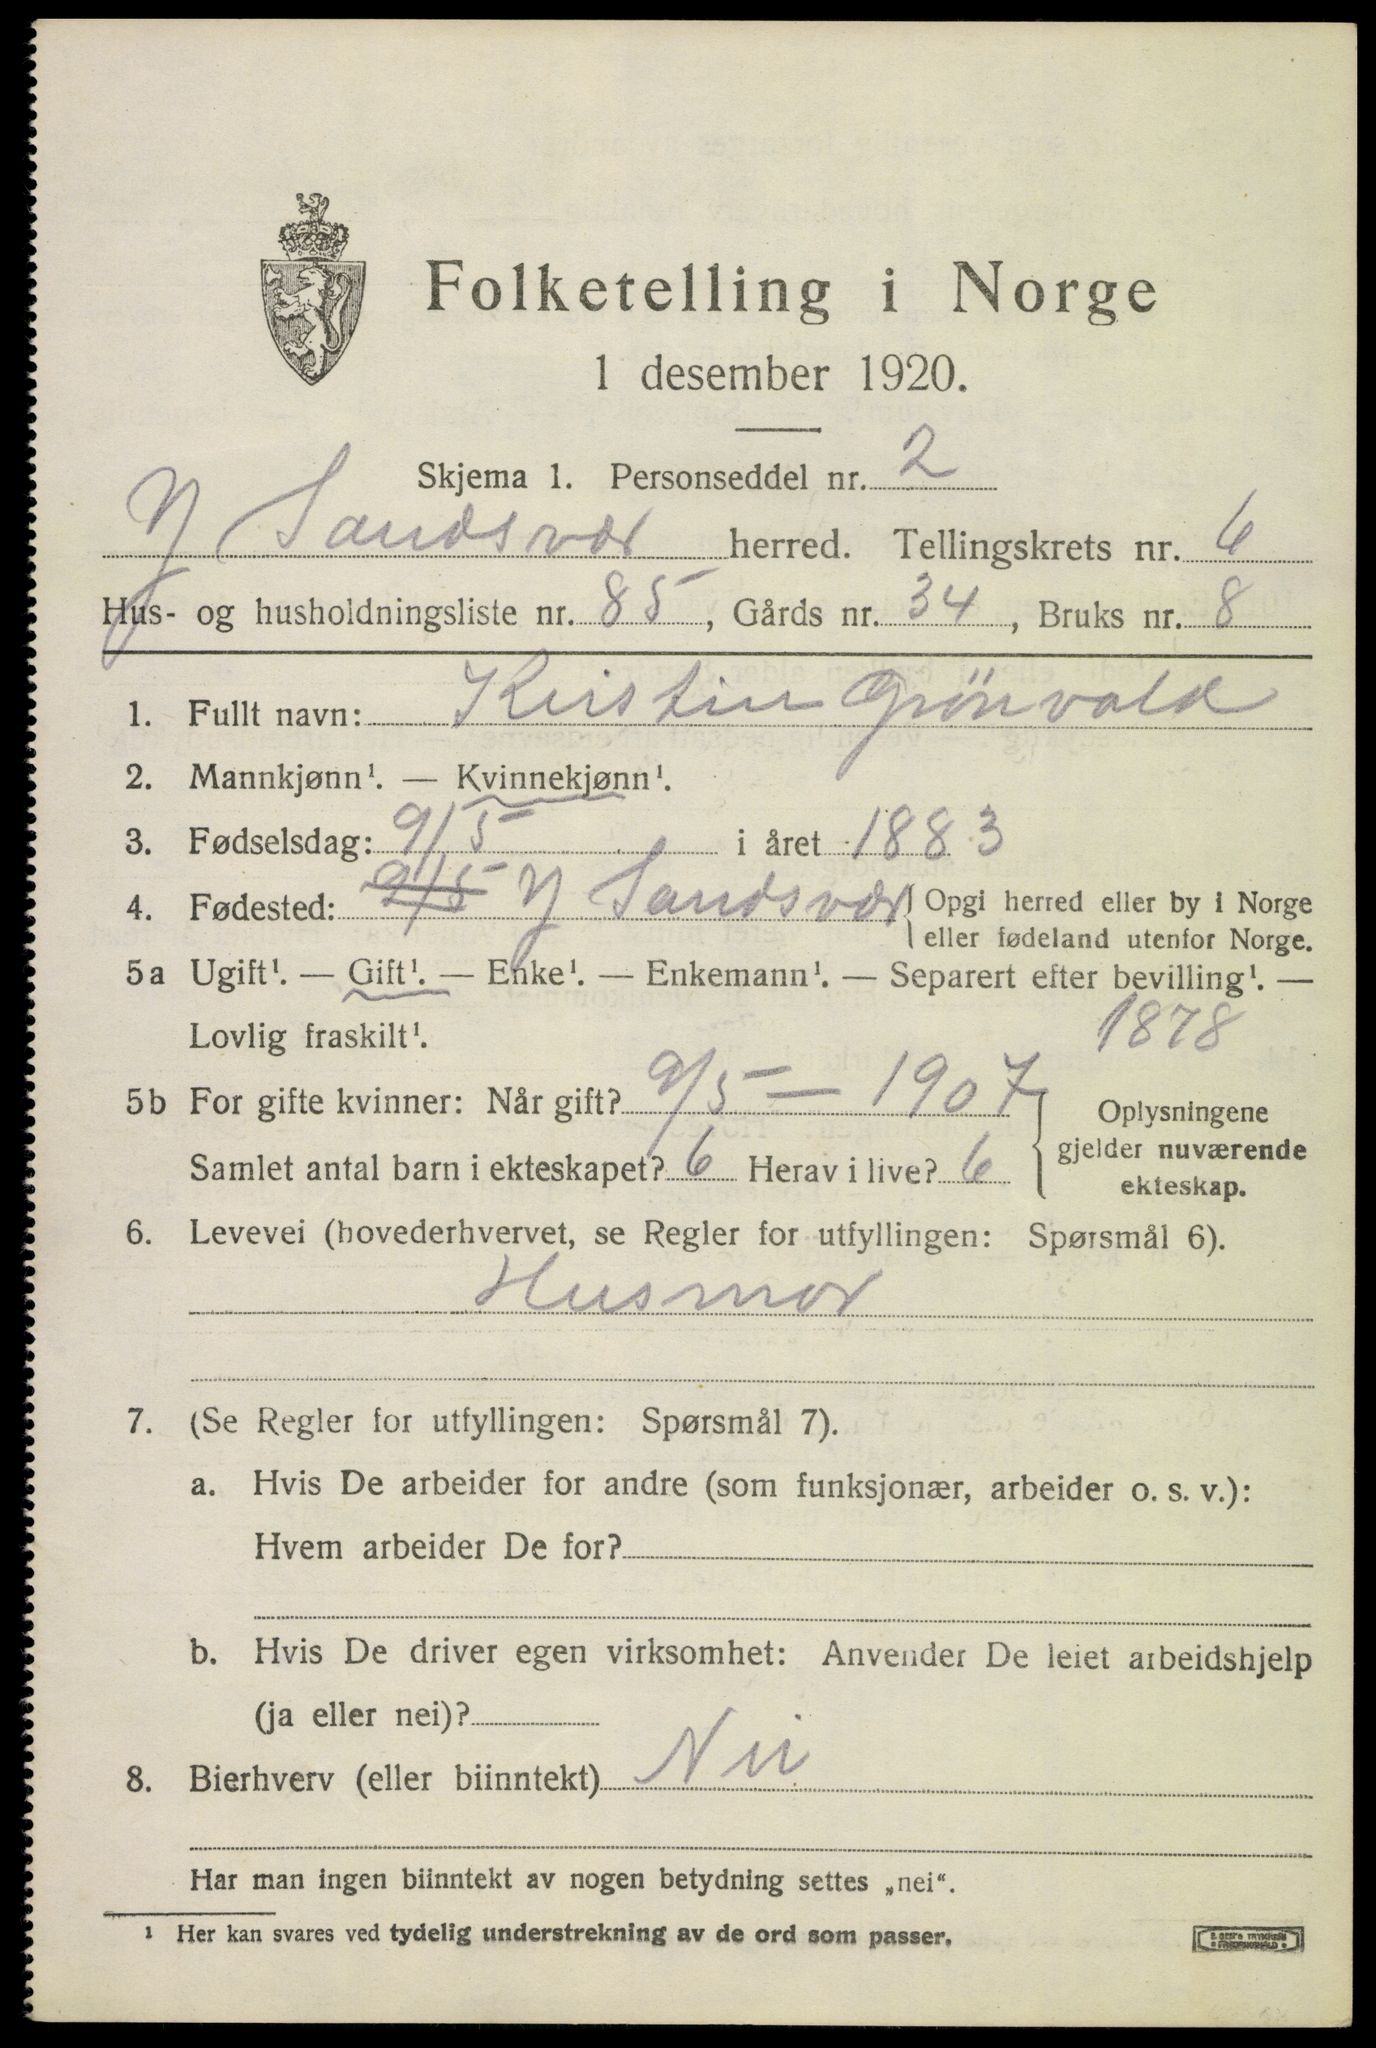 Folketelling i Norge
1 desember 1920.
Skjema 1. Personseddel nr. 2
Y Sandsvær herred. Tellingskrets nr. 6
Hus- og husholdningsliste nr. 85, Gårds nr. 34, Bruks nr. 8
1. Fullt navn: Kristin Grönvald
2. Mannkjønn¹. — Kvinnekjønn¹.
3. Fødselsdag: 9/5 i året 1883
4. Fødested: 9/5 Y Sandsvær { Opgi herred eller by i Norge
eller fødeland utenfor Norge.
5a Ugift¹. — Gift¹. — Enke¹. — Enkemann¹. — Separert efter bevilling¹. —
Lovlig fraskilt¹. 1878
5b For gifte kvinner: Når gift? 9/5 — 1907
Samlet antal barn i ekteskapet? 6 Herav i live? 6
{ Oplysningene
gjelder nuværende
ekteskap.
6. Levevei (hovederhvervet, se Regler for utfyllingen: Spørsmål 6).
Husmor
7. (Se Regler for utfyllingen: Spørsmål 7).
a. Hvis De arbeider for andre (som funksjonær, arbeider o. s. v.):
Hvem arbeider De for?
b. Hvis De driver egen virksomhet: Anvender De leiet arbeidshjelp
(ja eller nei)?
8. Bierhverv (eller biinntekt) Nei
Har man ingen biinntekt av nogen betydning settes „nei“.
¹ Her kan svares ved tydelig understrekning av de ord som passer.